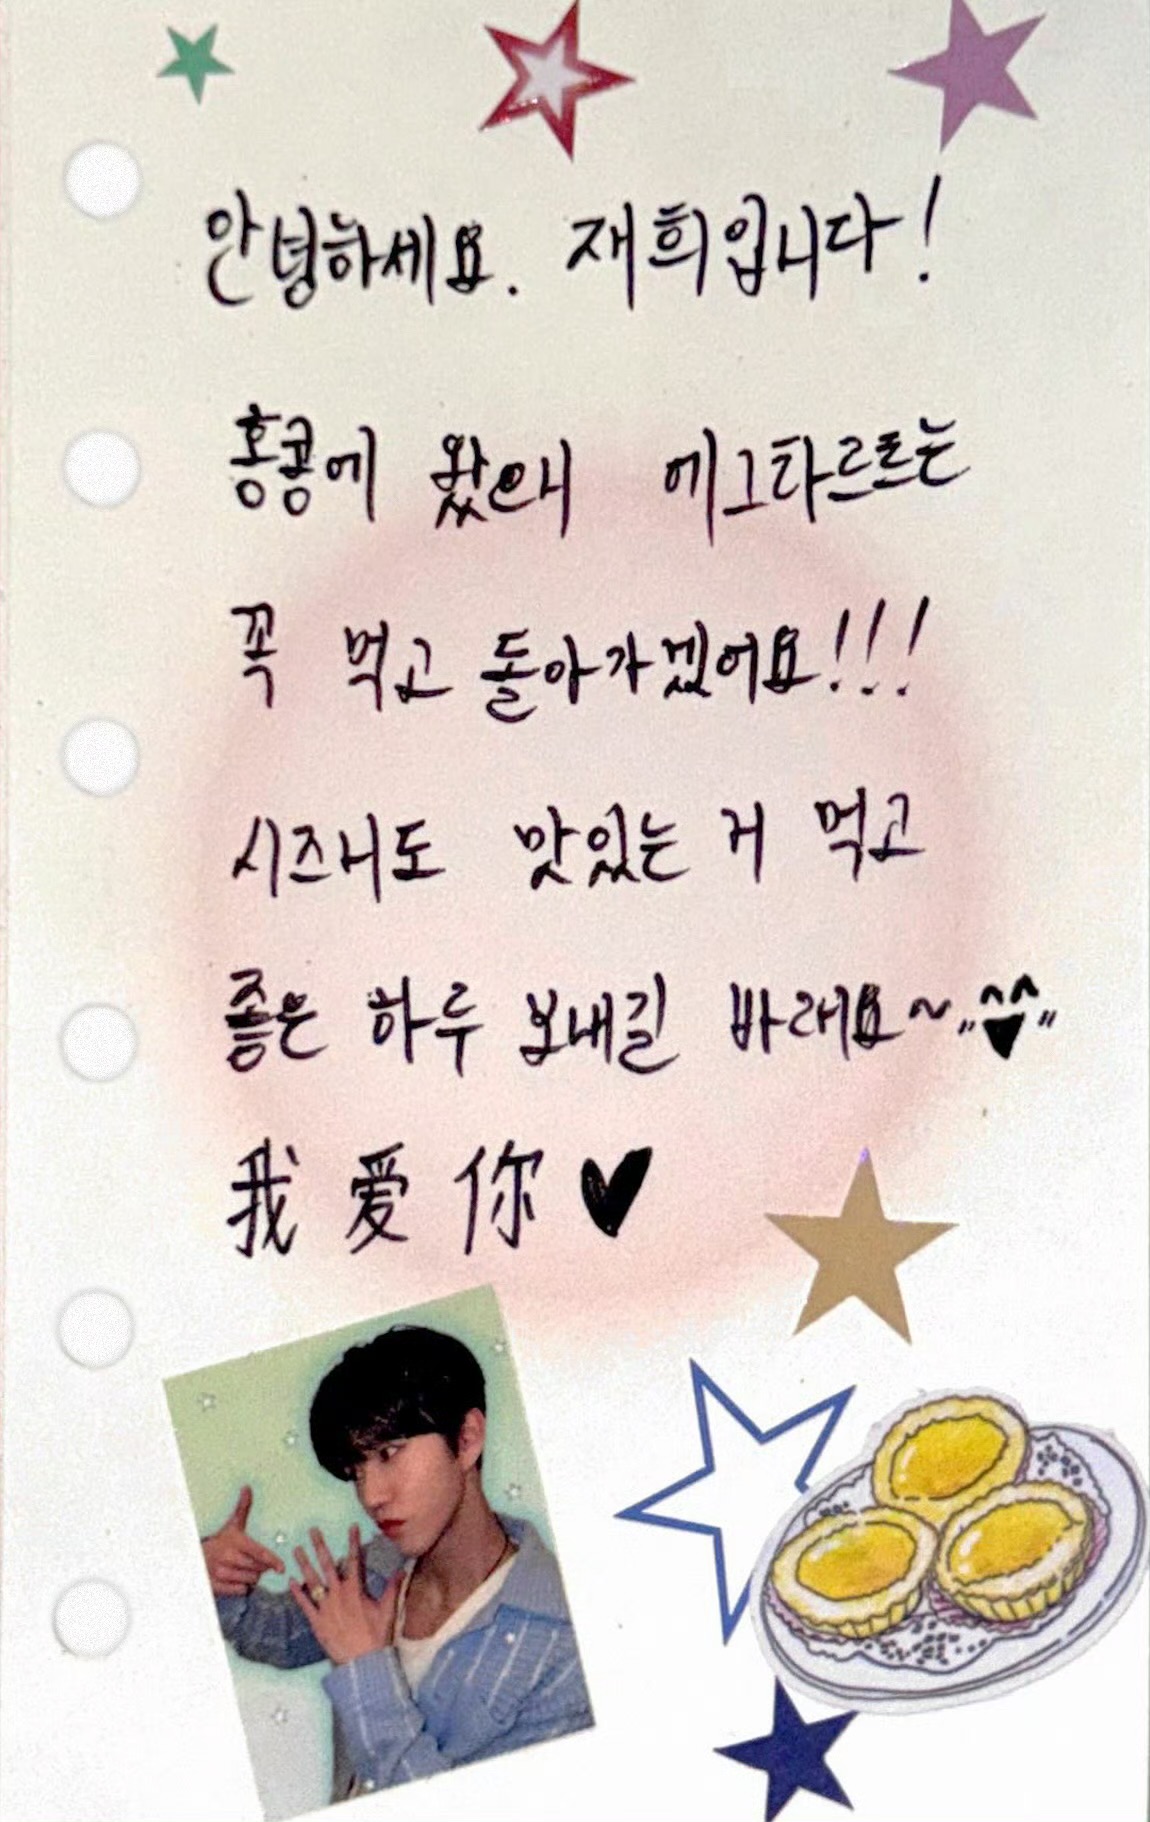 안녕하세요. 재희입니다!
홍콩에 왔으니 에그타르트는
꼭 먹고 돌아가겠어요!!!
시즈니도 맛있는 거 먹고
좋은 하루 보내길 바래요~
我爱你♥